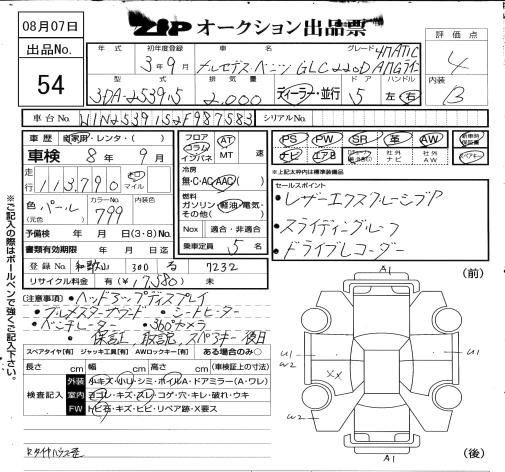 08月07日
ZIP オークション出品票
出品No.
54
評価点
4
内装
B
年式 初年度登録 車名 グレード
3年9月 メルセデス・ベンツ GLC220D 4MATIC AMGライン
型式 排気量 ドア ハンドル
3DA-253915 2,000 ディーラー・並行 5 左・右
車台No. W1N2539152F987583 シリアルNo.
車歴 自家用・レンタ・( )
車検 8年9月
走行 113,790 キロ マイル
色 (元色) パール カラーNo. 799 内装色
予備検 年 月 日(3・8)No.
書類有効期限 年 月 日迄
登録No. 和歌山 300 る 7232
リサイクル料金 有(¥17,580) 未
フロア コラム インパネ AT MT 速
冷房 無・C・AC・AAC( )
燃料 ガソリン・軽油・電気・その他( )
Nox 適合・非適合
乗車定員 5名
PS PW SR 革 AW 新車時保証書
ナビ エアB 社外ナビ 社外AW スペアキー
※上記太枠内は標準装備品
セールスポイント
・レザーエクスクルーシブP
・スライディングルーフ
・ドライブレコーダー
(注意事項)・ヘッドアップディスプレイ
・ブルメスターサウンド・シートヒーター
・ベンチレーター・360°カメラ
・保証書,取説,スペアキー後日
スペアタイヤ[有] ジャッキ工具[有] AWロックキー[有] ある場合のみ○
長さ cm 幅 cm 高さ cm (車検証上の寸法)
検査記入
外装 小キズ・小リ・シミ・ホイルA・ドアミラー(A・ワレ)
室内 ヨゴレ・キズ・スレ・コゲ・穴・キレ・破れ・ウキ
FW トビ石・キズ・ヒビ・リペア跡・X要ス
※ご記入の際はボールペンで強くご記入下さい。
(前)
A1
U1
W2
U1
XX
W2
A1
(後)